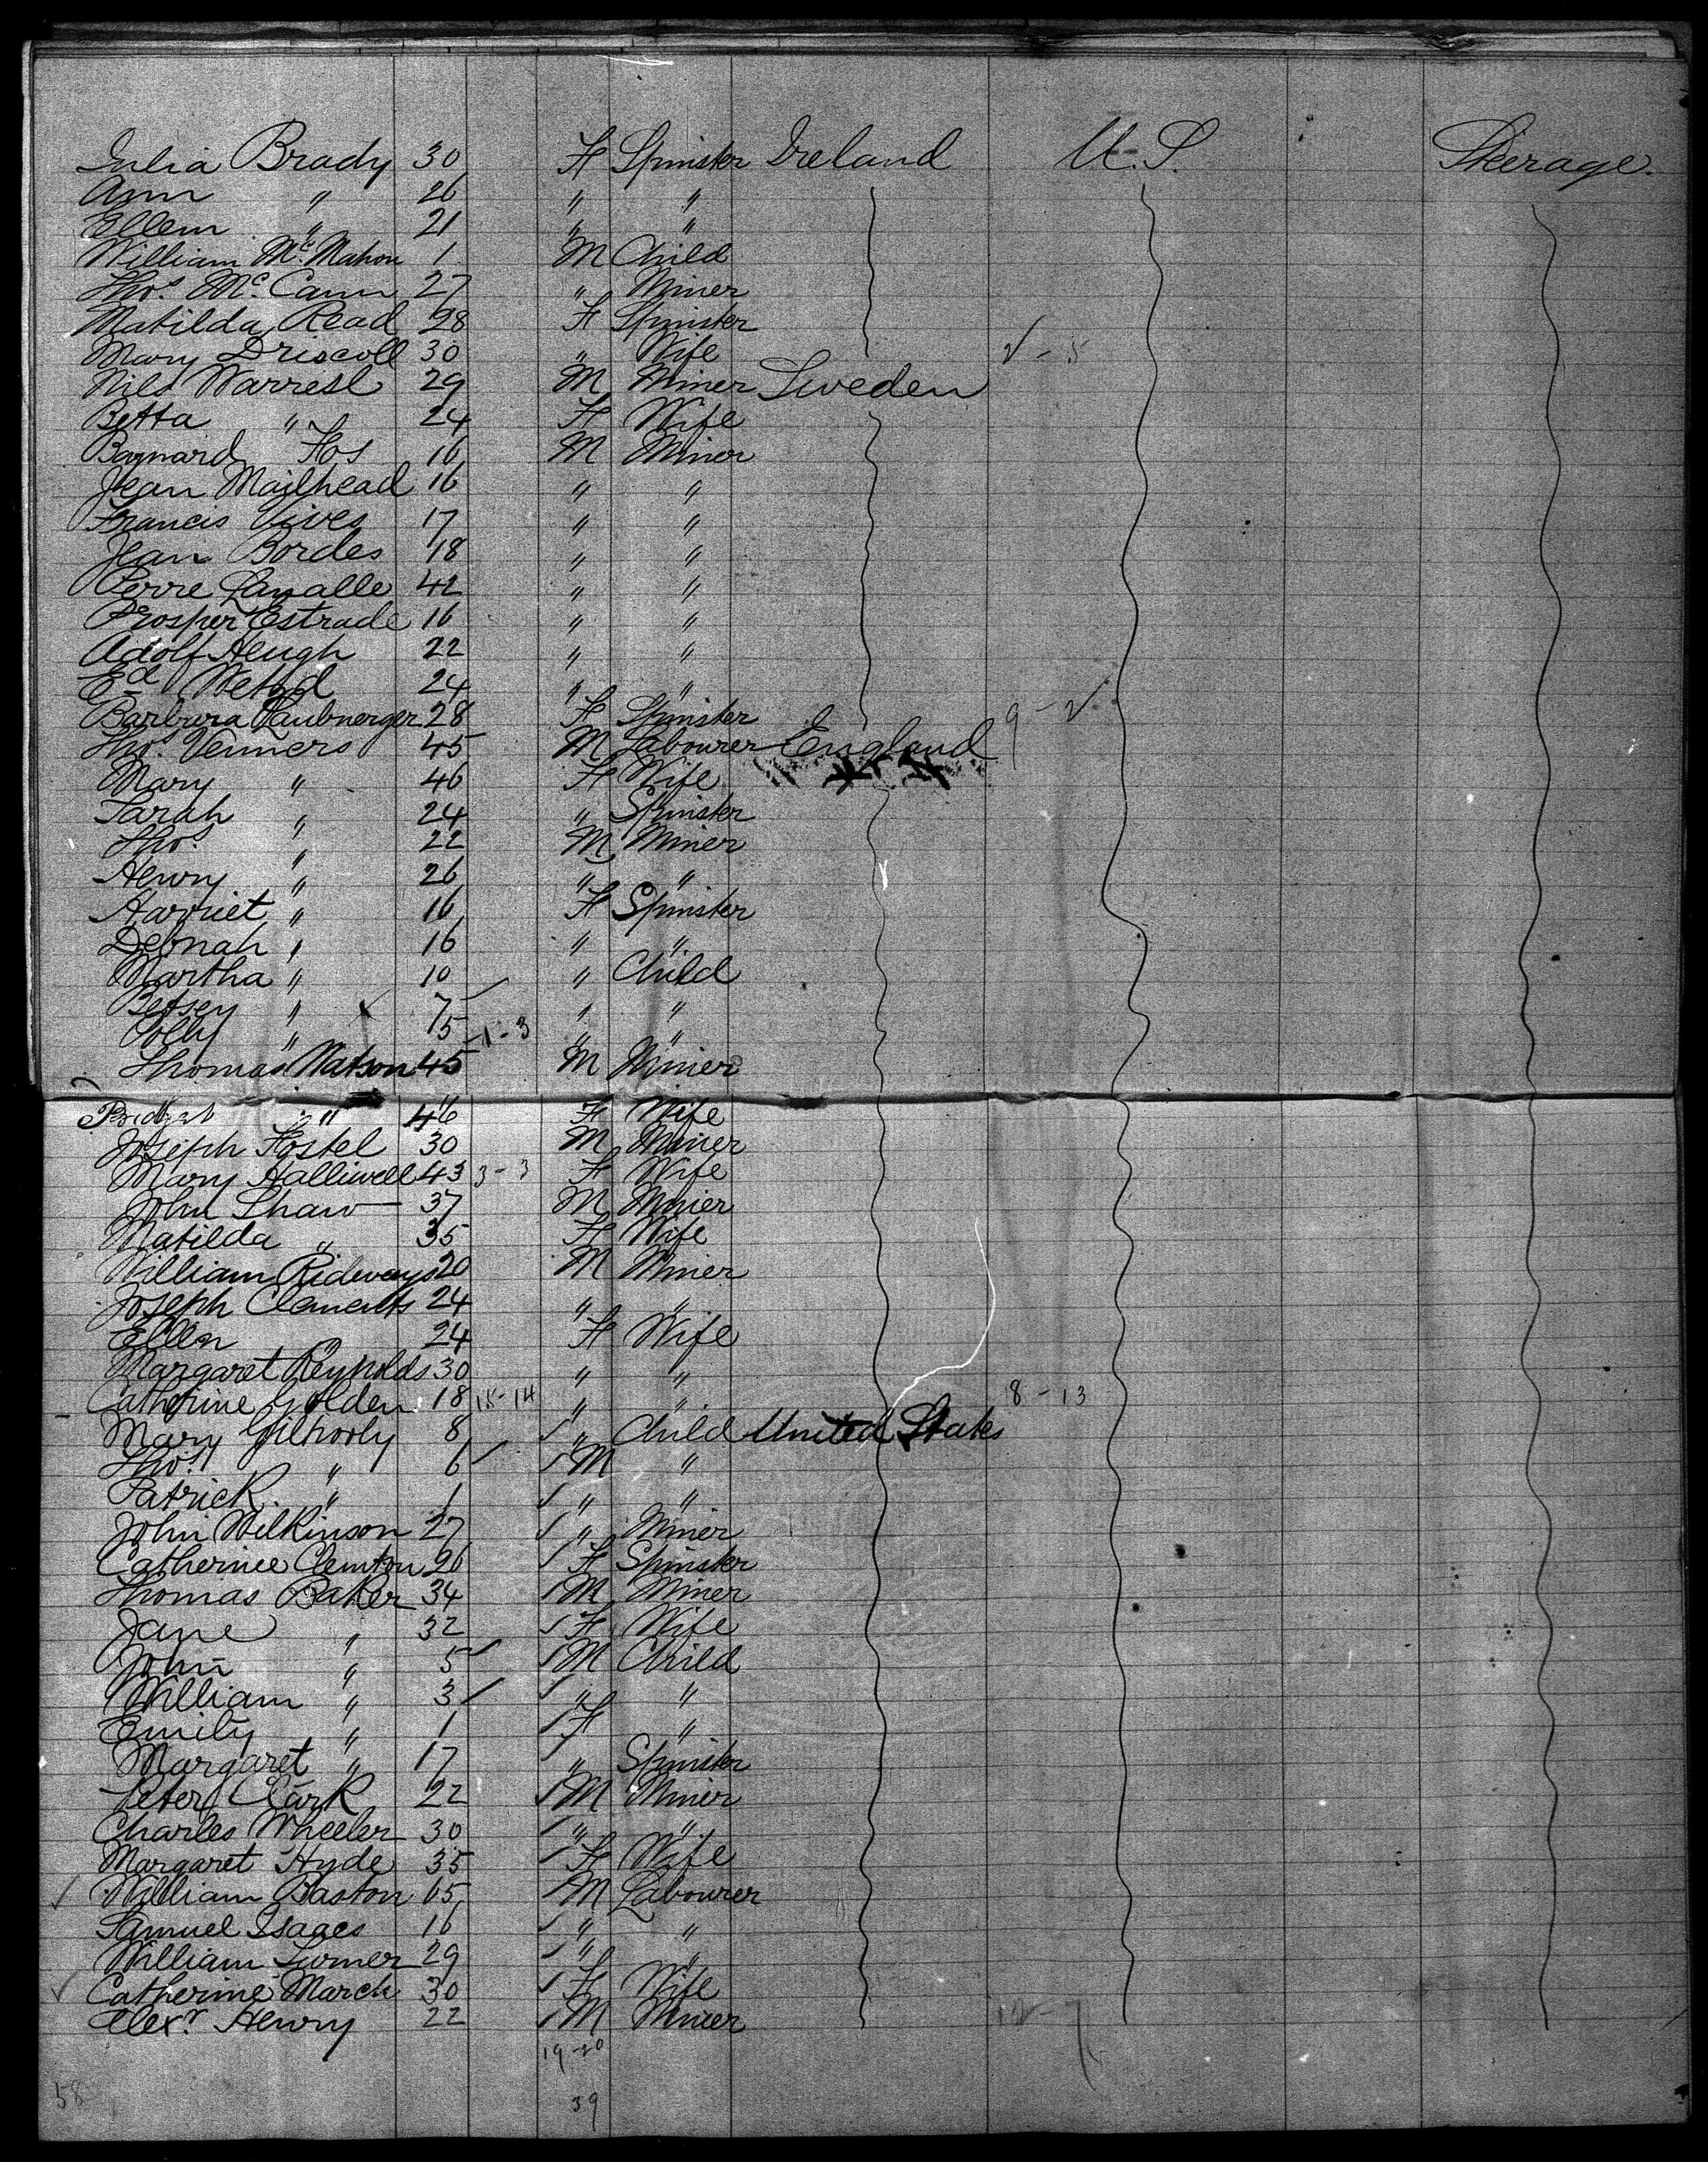 Julia Brady 30 F Spinster Ireland U.S. Steerage.
Ann " 26 " "
Ellen " 21 " "
William McMahon 1 M Child
Thos. McCann 27 " Miner
Matilda Read 28 F Spinster
Mary Driscoll 30 " Wife
Nils Warresl 29 M Miner Sweden
Betta " 24 F Wife
Baynard Fos 16 M Miner
Jean Mailhead 16 " "
Francis Vives 17 " "
Jean Bordes 18 " "
Perre Lazalle 42 " "
Prosper Estrade 16 " "
Adolf Heugh 22 " "
Ed 24 " "
Barbura Laubnerger 28 F Spinster 9 -
Thos. Venners 45 M Labourer England
Mary " 46 F Wife
Sarah " 24 " Spinster
Thos. " 22 M Miner
Henry " 26 " "
Harriet " 16 F Spinster
Debnah " 16 " "
Martha " 10 " Child
Betsey " 7 " "
Polly " 5 1-3 " "
Thomas Watson 45 M Miner
Bridget " 46 F Wife
Joseph Fostel 30 M Miner
Mary Halliwell 43 3-3 F Wife
John Shaw 37 M Miner
Matilda " 35 F Wife
William Rideways 20 M Miner
Joseph Clements 24 " "
Ellen 24 F Wife
Margaret Reynolds 30 " "
Catherine Golden 18 18-14 " " 8-13
Mary Gilhooly 8 " Child United States
Thos. " 6 M "
Patrick " 1 " "
John Wilkinson 27 " Miner
Catherine Clemton 26 F Spinster
Thomas Baker 34 M Miner
Jane " 32 F Wife
John " 5 M Child
William " 3 " "
Emily " 1 F "
Margaret " 17 " Spinster
Peter Clark 22 M Miner
Charles Wheeler 30 " "
Margaret Hyde 35 F Wife
William Baston 65 M Labourer
Samuel Isaacs 16 " "
William Turner 29 " "
Catherine March 30 F Wife
Alexr. Henry 22 M Miner 12-7
19-20
58 39